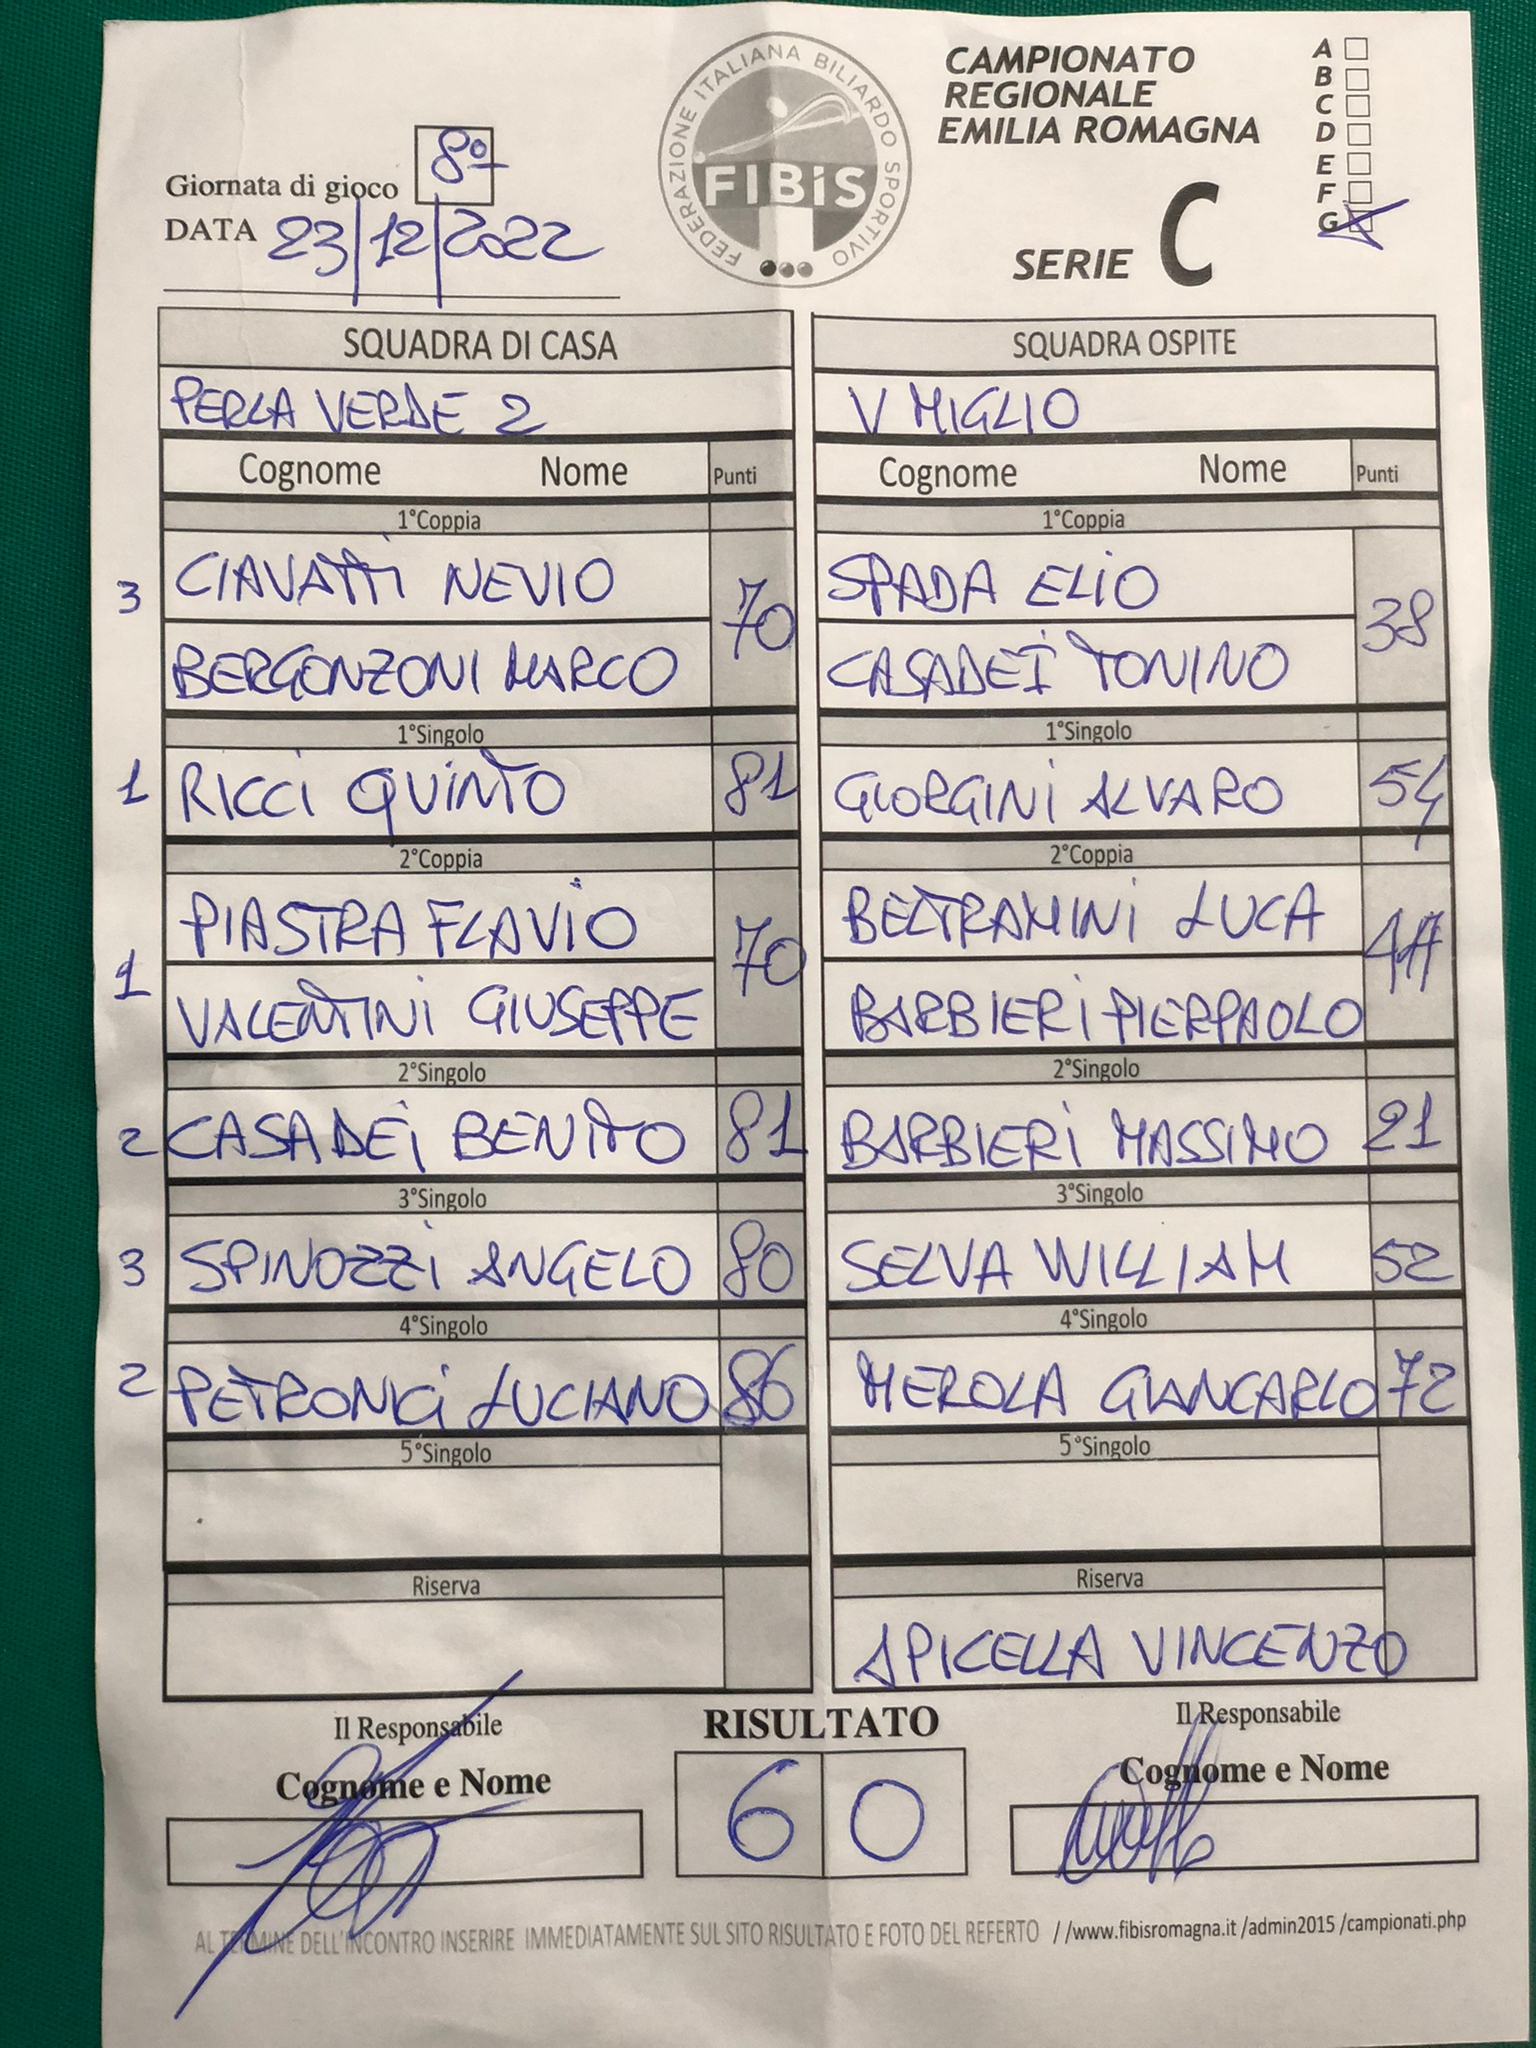 FEDERAZIONE ITALIANA BILIARDO SPORTIVO
FIBiS
CAMPIONATO
REGIONALE
EMILIA ROMAGNA
SERIE C
A
B
C
D
E
F
G
Giornata di gioco 8º
DATA 23/12/2022
SQUADRA DI CASA
SQUADRA OSPITE
PERLA VERDE 2
V MIGLIO
Cognome Nome Punti
Cognome Nome Punti
1°Coppia
1°Coppia
3 CIAVATTI NEVIO 70
BERGONZONI MARCO
SPADA ELIO 38
CASADEI TONINO
1°Singolo
1°Singolo
1 RICCI QUINTO 81
GIORGINI ALVARO 54
2°Coppia
2°Coppia
1 PIASTRA FLAVIO 70
VALENTINI GIUSEPPE
BELTRAMINI LUCA
BARBIERI PIERPAOLO
2°Singolo
2°Singolo
2 CASADEI BENITO 81
BARBIERI MASSIMO 21
3°Singolo
3°Singolo
3 SPINOZZI ANGELO 80
SELVA WILLIAM 52
4°Singolo
4°Singolo
2 PETRONICI LUCIANO 86
MEROLA GIANCARLO 72
5°Singolo
5°Singolo
Riserva
Riserva
APICELLA VINCENZO
Il Responsabile
RISULTATO
Il Responsabile
Cognome e Nome
6 0
Cognome e Nome
AL TERMINE DELL'INCONTRO INSERIRE IMMEDIATAMENTE SUL SITO RISULTATO E FOTO DEL REFERTO //www.fibisromagna.it /admin2015 /campionati.php